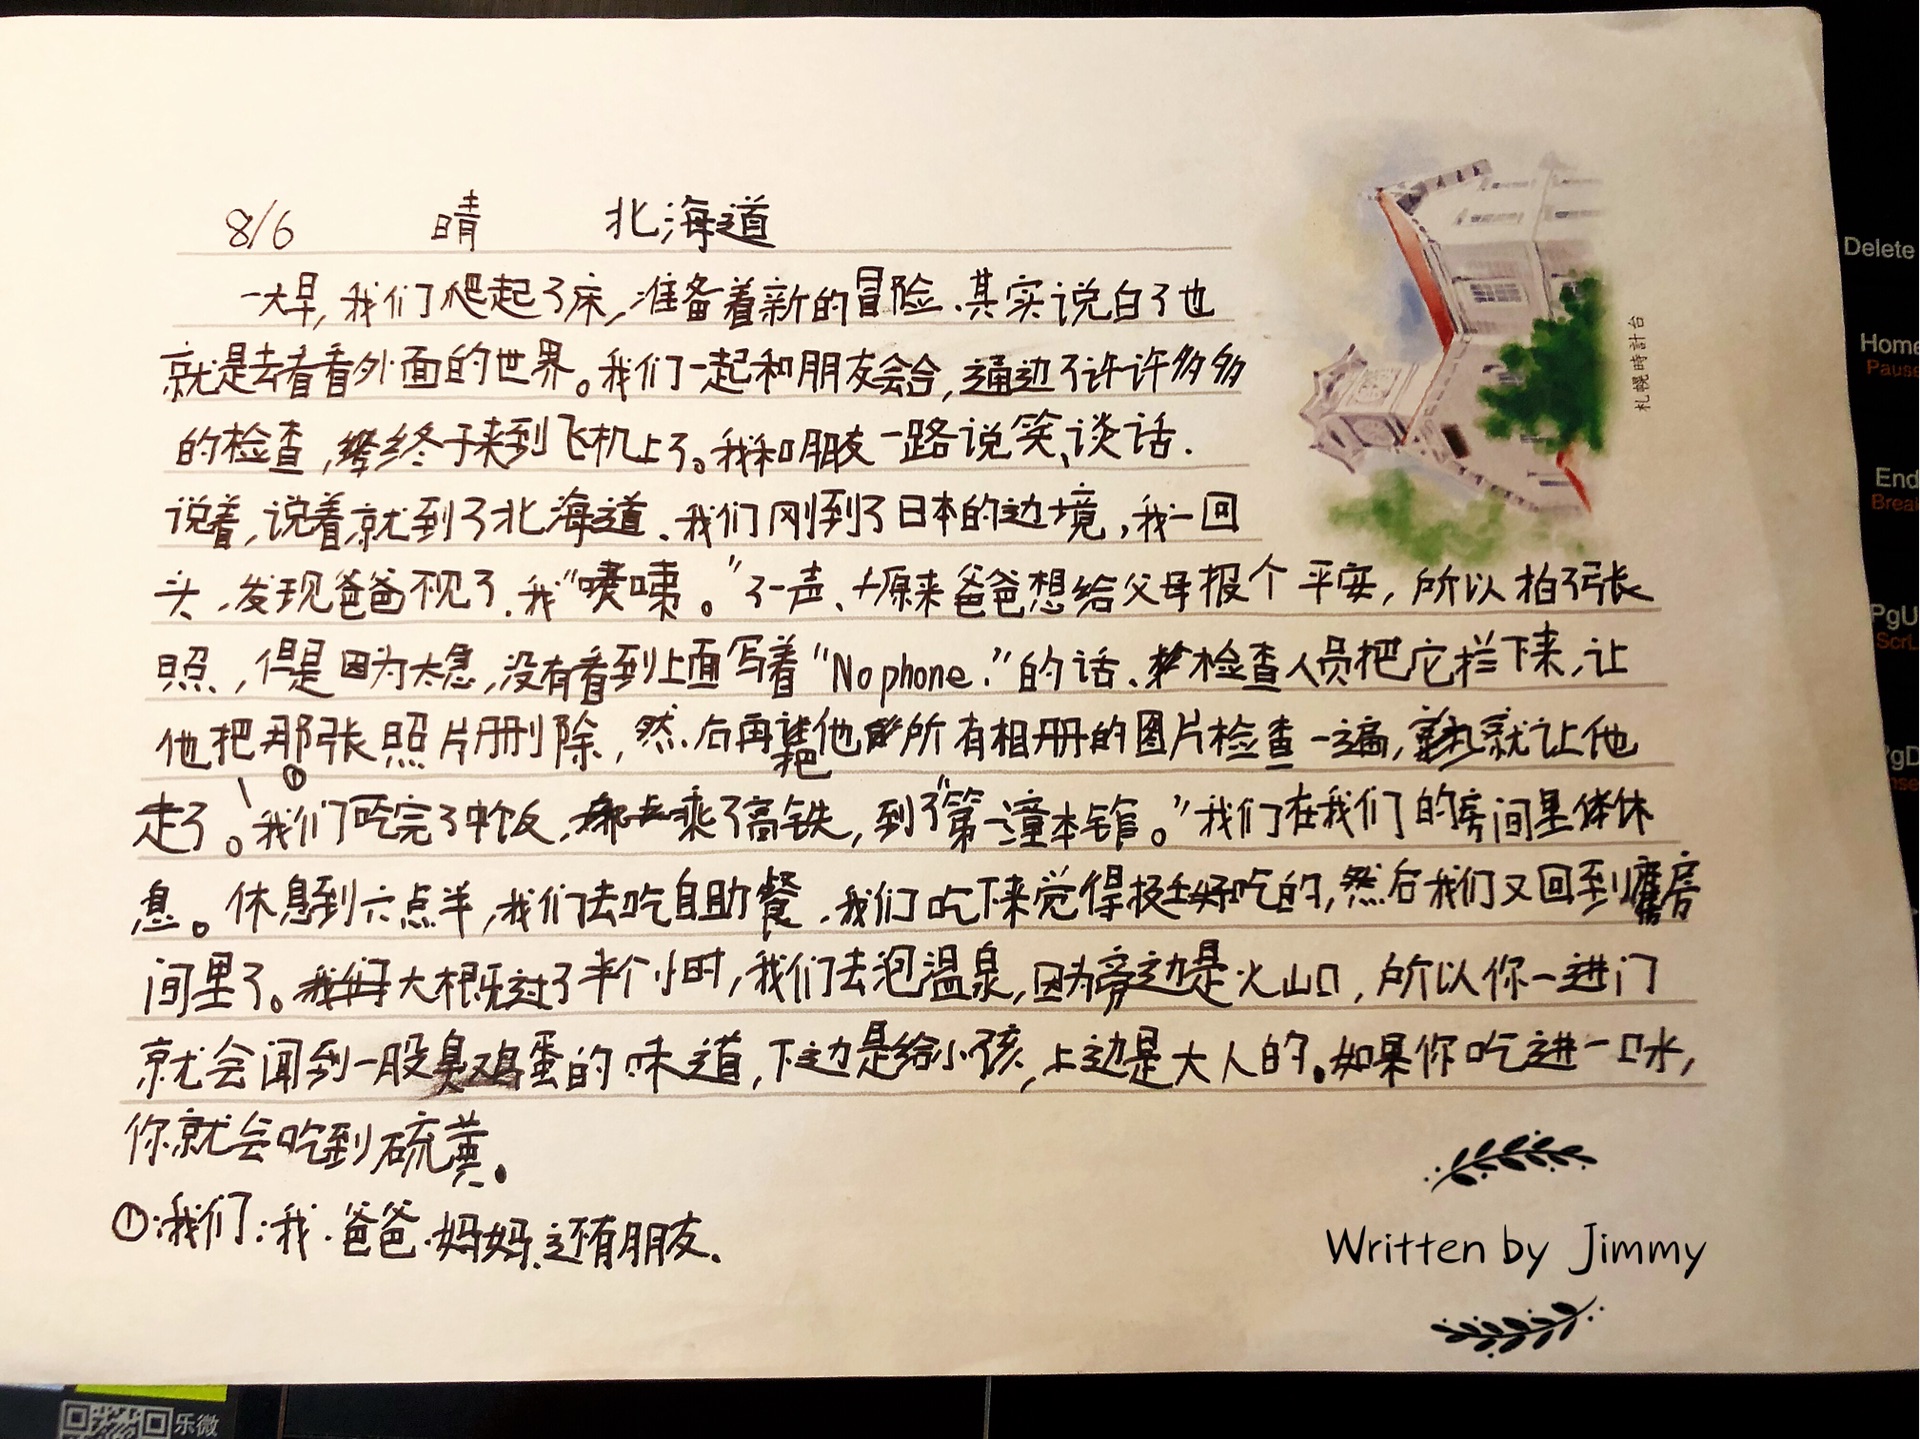 8/6 晴 北海道
一大早,我们爬起了床,准备着新的冒险.其实说白了也
就是去看看外面的世界。我们一起和朋友会合,通过了许许多多
的检查,终于来到飞机上了。我和朋友一路说笑、谈话.
说着,说着,就到了北海道.我们刚到了日本的边境,我一回
头,发现爸爸不见了.我“噗嗤。”了一声、原来爸爸想给父母报个平安,所以拍了张
照,但是因为太急,没有看到上面写着“No phone.”的话.检查人员把它拦下来,让
他把那张照片删除,然后再把他所有相册的图片检查一遍,就让他
走了。我们①吃完了中饭,乘了高铁,到了“第一潼本馆。”我们在我们的房间里休
息。休息到六点半,我们去吃自助餐.我们吃下来觉得挺好吃的,然后我们又回到房
间里了。大概过了半个小时,我们去泡温泉,因为旁边是火山口,所以你一进门
就会闻到一股臭鸡蛋的味道,下边是给小孩,上边是大人的。如果你吃进一口水,
你就会吃到硫黄。
①:我们:我.爸爸.妈妈.还有朋友.
札幌時計台
Written by Jimmy
Delete
Home
Pause
End
Break
PgU
ScrL
PgD
乐微